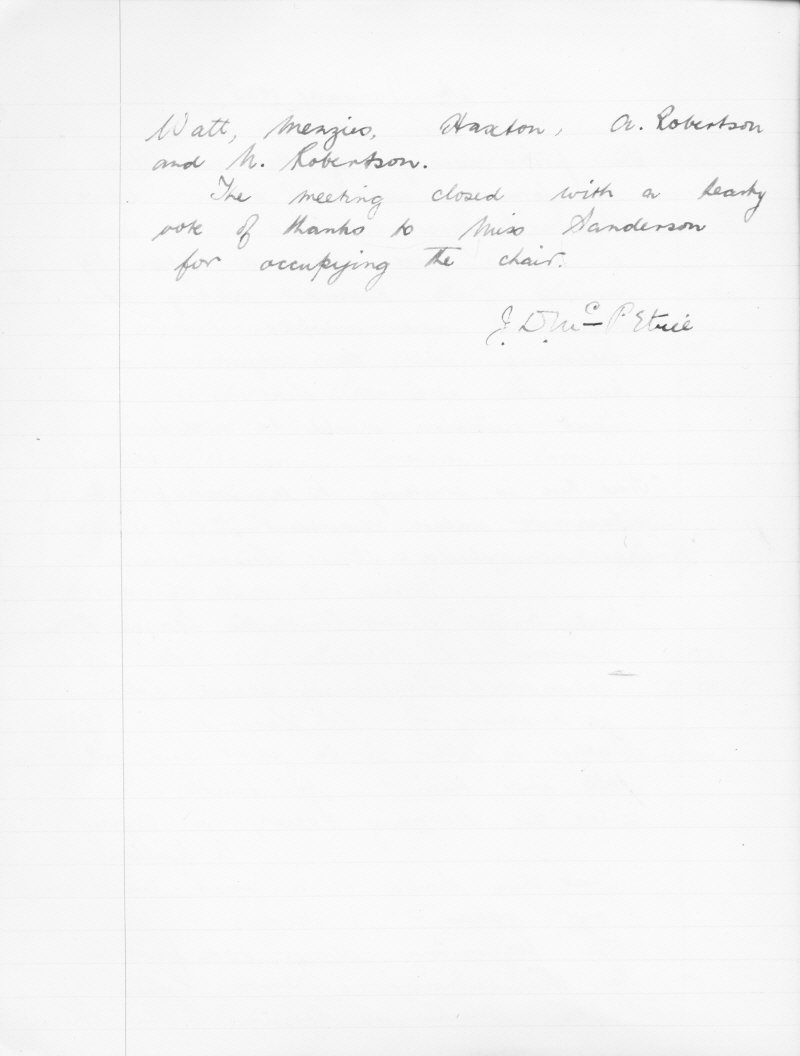 Watt, Menzies, Haxton, A. Robertson
and N. Robertson.
The meeting closed with a hearty
vote of thanks to Miss Sanderson
for occupying the chair.
J. D. Mc Petrie